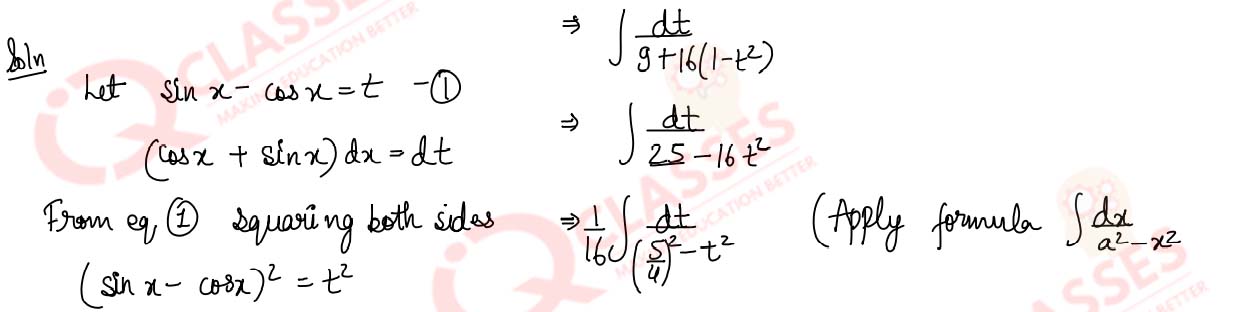 Soln
Let sin x - cos x = t - ①
(cos x + sin x) dx = dt
From eq ① squaring both sides
(sin x - cos x)² = t²
⇒ ∫ dt / 9+16(1-t²)
⇒ ∫ dt / 25 - 16t²
⇒ 1/16 ∫ dt / (5/4)² - t² (Apply formula ∫ dx / a² - x²
IQ CLASSES
MAKING EDUCATION BETTER
CLASSES
EDUCATION BETTER
CLASSES